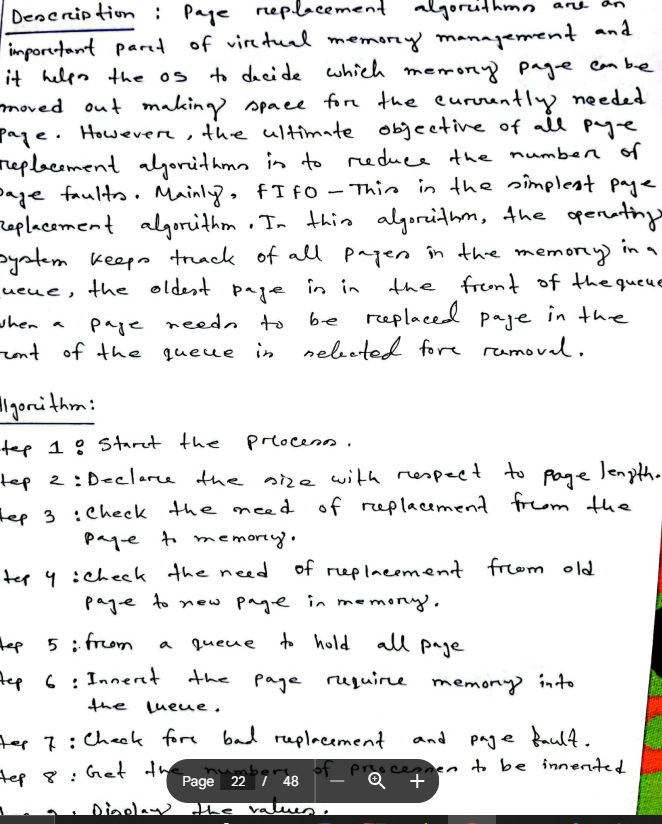 Description : Page replacement algorithms are an
important part of virtual memory management and
it helps the OS to decide which memory page can be
moved out making space for the currently needed
page. However, the ultimate objective of all page
replacement algorithms is to reduce the number of
page faults. Mainly, FIFO - This is the simplest page
replacement algorithm. In this algorithm, the operating
system keeps track of all pages in the memory in a
queue, the oldest page is in the front of the queue
when a page needs to be replaced page in the
front of the queue is selected for removal.
Algorithm:
Step 1 : Start the process.
Step 2 : Declare the size with respect to page length.
Step 3 : Check the need of replacement from the
page to memory.
Step 4 : Check the need of replacement from old
page to new page in memory.
Step 5 : from a queue to hold all page
Step 6 : Insert the page require memory into
the queue.
Step 7 : Check for bad replacement and page fault.
Step 8 : Get the number of processes to be inserted
Page 22 / 48 — +
Display the values.